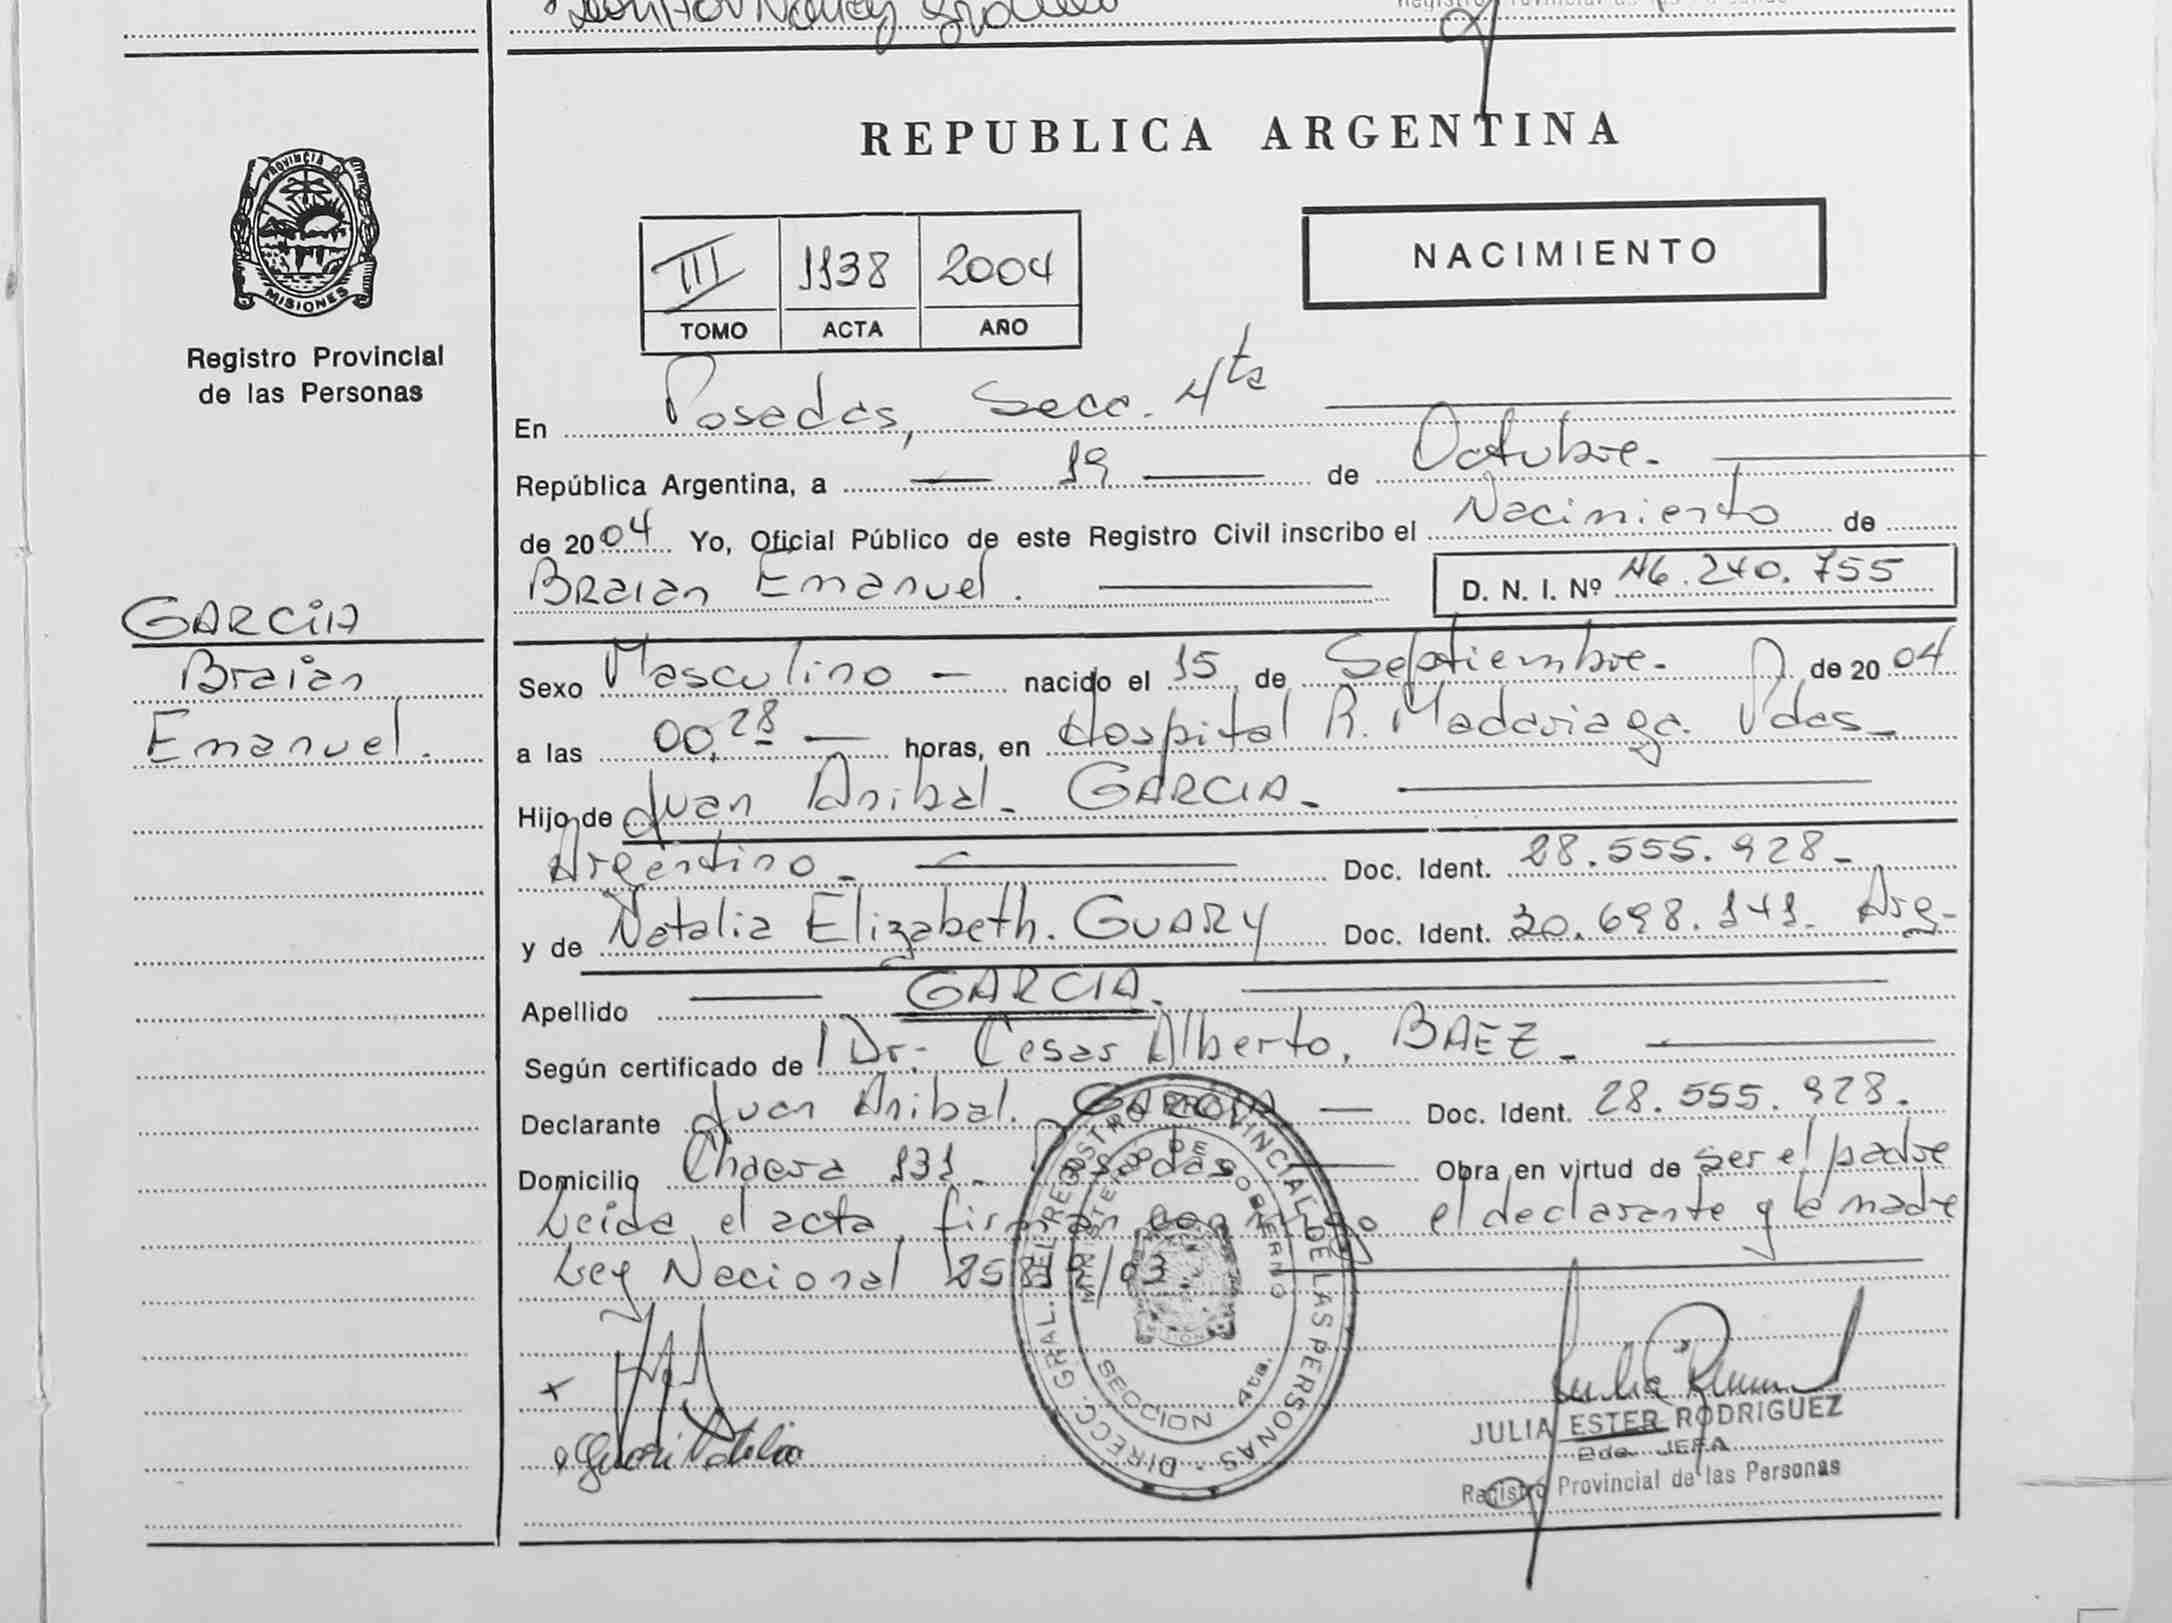 PROVINCIA DE
MISIONES
Registro Provincial
de las Personas
GARCiA
Braian
Emanuel.
REPUBLICA ARGENTINA
III 1138 2004
TOMO ACTA AÑO
NACIMIENTO
En Posadas, Secc. 4ta
República Argentina, a 19 de Octubre.
de 2004 Yo, Oficial Público de este Registro Civil inscribo el Nacimiento de
Braian Emanuel. D. N. I. Nº 46.240.755
Sexo Masculino nacido el 15 de Septiembre. de 2004
a las 00,28 horas, en Hospital R. Madariaga. Pdas
Hijo de Juan Anibal GARCIA
Argentino Doc. Ident. 28.555.928
y de Natalia Elizabeth. GUARY Doc. Ident. 30.698.141. Arg
Apellido GARCIA.
Según certificado de Dr. Cesar Alberto, BAEZ
Declarante Juan Anibal. GARCIA Doc. Ident. 28.555.928.
Domicilio Chacra 131 Posadas Obra en virtud de ser el padre
Leida el acta, firman conmigo el declarante y la madre
Ley Nacional 25819/03
DIRECC. GRAL. DEL REGISTRO PROVINCIAL DE LAS PERSONAS
MINISTERIO DE GOBIERNO
SECCION 4ta.
JULIA ESTER RODRIGUEZ
2da. JEFA
Registro Provincial de las Personas